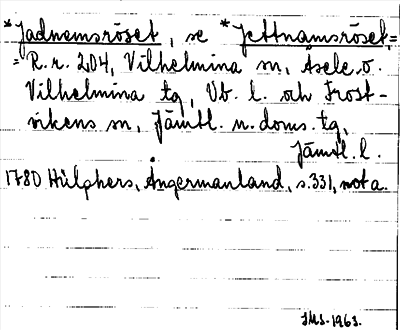 *Jadnemsröset, se *Jettnamsröset,=
= R.r. 204, Vilhelmina sn, Åsele o.
Vilhelmina tg, Vb. l. och Frost-
vikens sn, Jämtl. n. doms. tg,
Jämtl. l.
1780 Hülphers, Ångermanland, s.331, not a.
JMS.1963.